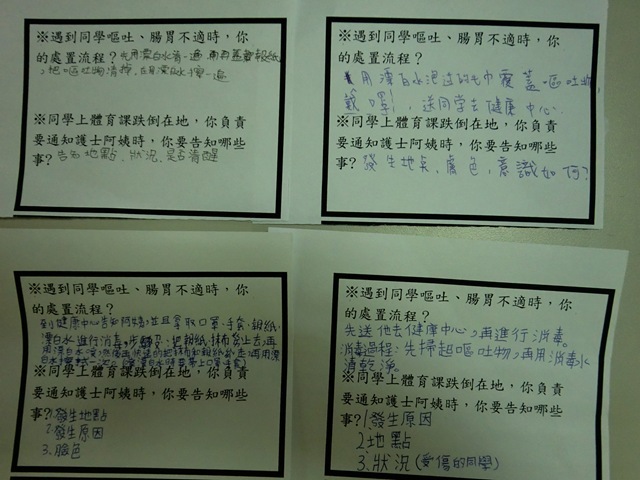 ※遇到同學嘔吐、腸胃不適時，你
的處置流程？先用漂白水消一遍,再蓋報紙
把嘔吐物清掉,在用漂白水擦一遍
※同學上體育課跌倒在地，你負責
要通知護士阿姨時，你要告知哪些
事？告知地點、狀況、是否清醒
※遇到同學嘔吐、腸胃不適時，你
的處置流程？
用漂白水泡過的毛巾覆蓋嘔吐物,
戴口罩,送同學去健康中心.
※同學上體育課跌倒在地，你負責
要通知護士阿姨時，你要告知哪些
事？發生地點,膚色,意識如何?
※遇到同學嘔吐、腸胃不適時，你
的處置流程？
到健康中心告知阿姨,並且拿取口罩、手套、報紙、
漂白水進行消毒,步驟:把報紙抹布
※同學上體育課跌倒在地，你負責
要通知護士阿姨時，你要告知哪些
事？1.發生地點
2.發生原因
3.臉色
※遇到同學嘔吐、腸胃不適時，你
的處置流程？
先送他去健康中心,再進行消毒。
消毒過程:先掃起嘔吐物,再用消毒水
清乾淨。
※同學上體育課跌倒在地，你負責
要通知護士阿姨時，你要告知哪些
事？1.發生原因
2.地點
3.狀況(受傷的同學)